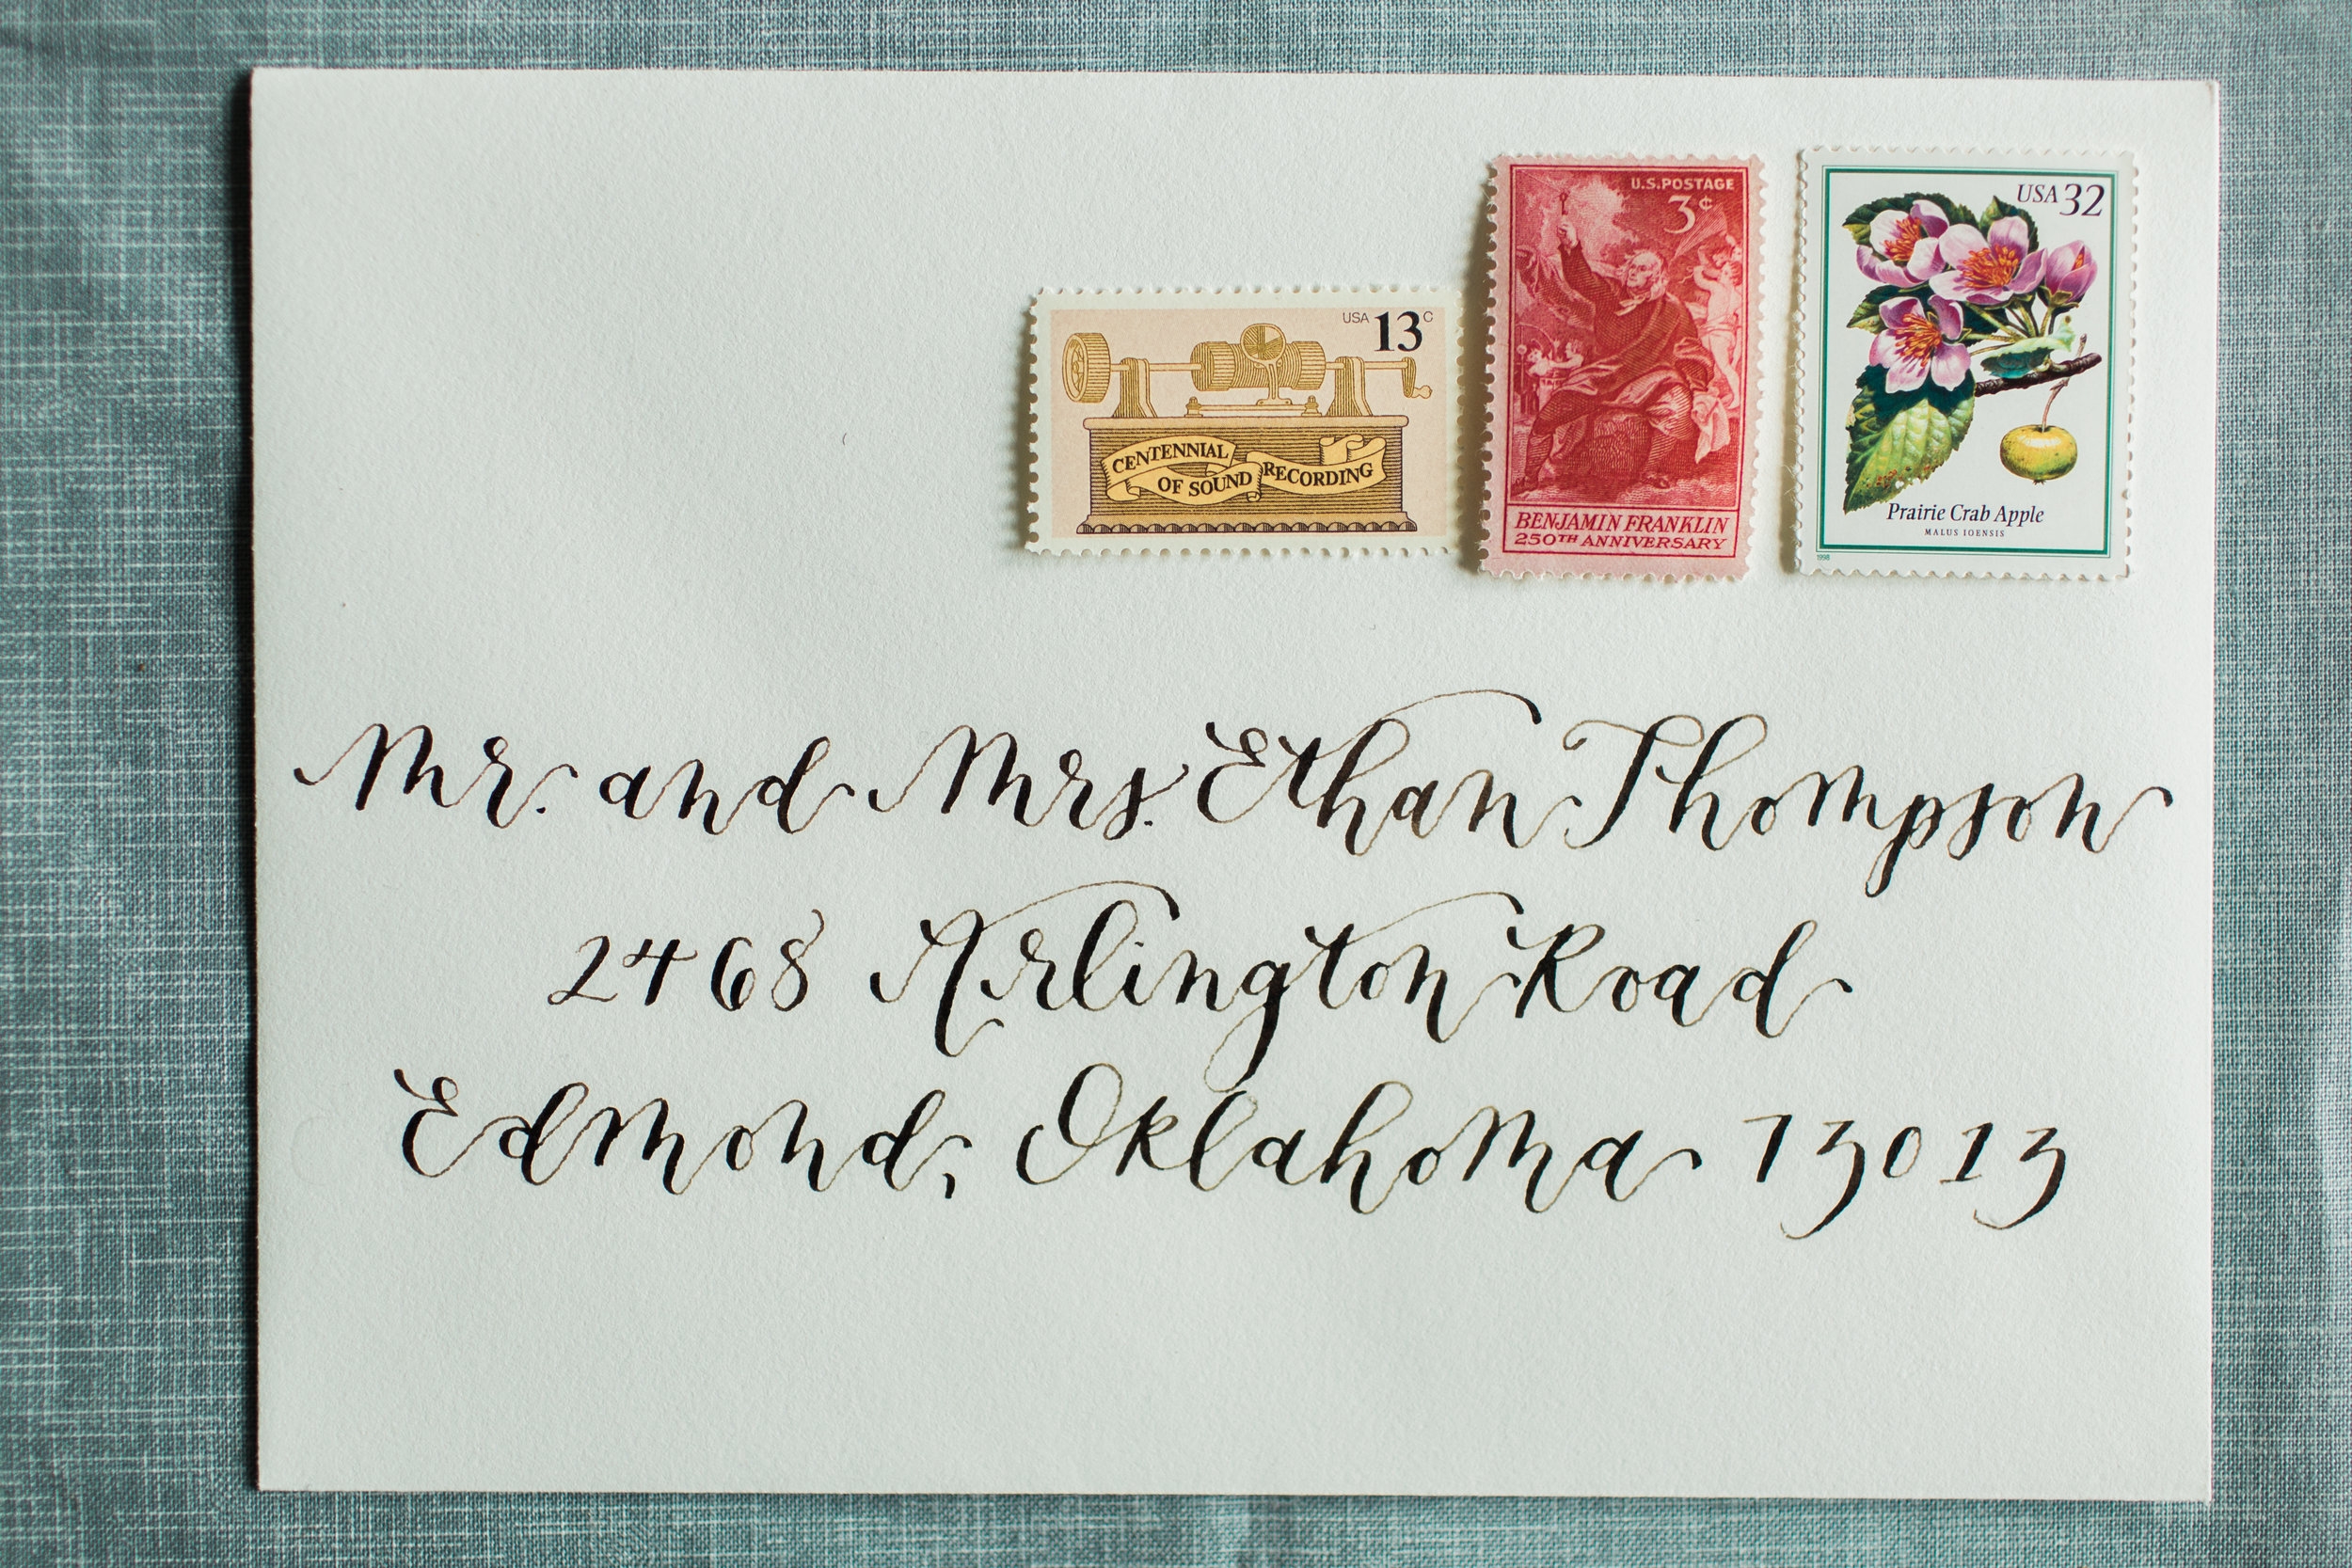 USA 13c
CENTENNIAL
OF SOUND RECORDING
U.S.POSTAGE
3¢
BENJAMIN FRANKLIN
250TH ANNIVERSARY
USA 32
Prairie Crab Apple
MALUS IOENSIS
1998
Mr. and Mrs. Ethan Thompson
2468 Arlington Road
Edmond, Oklahoma 73013